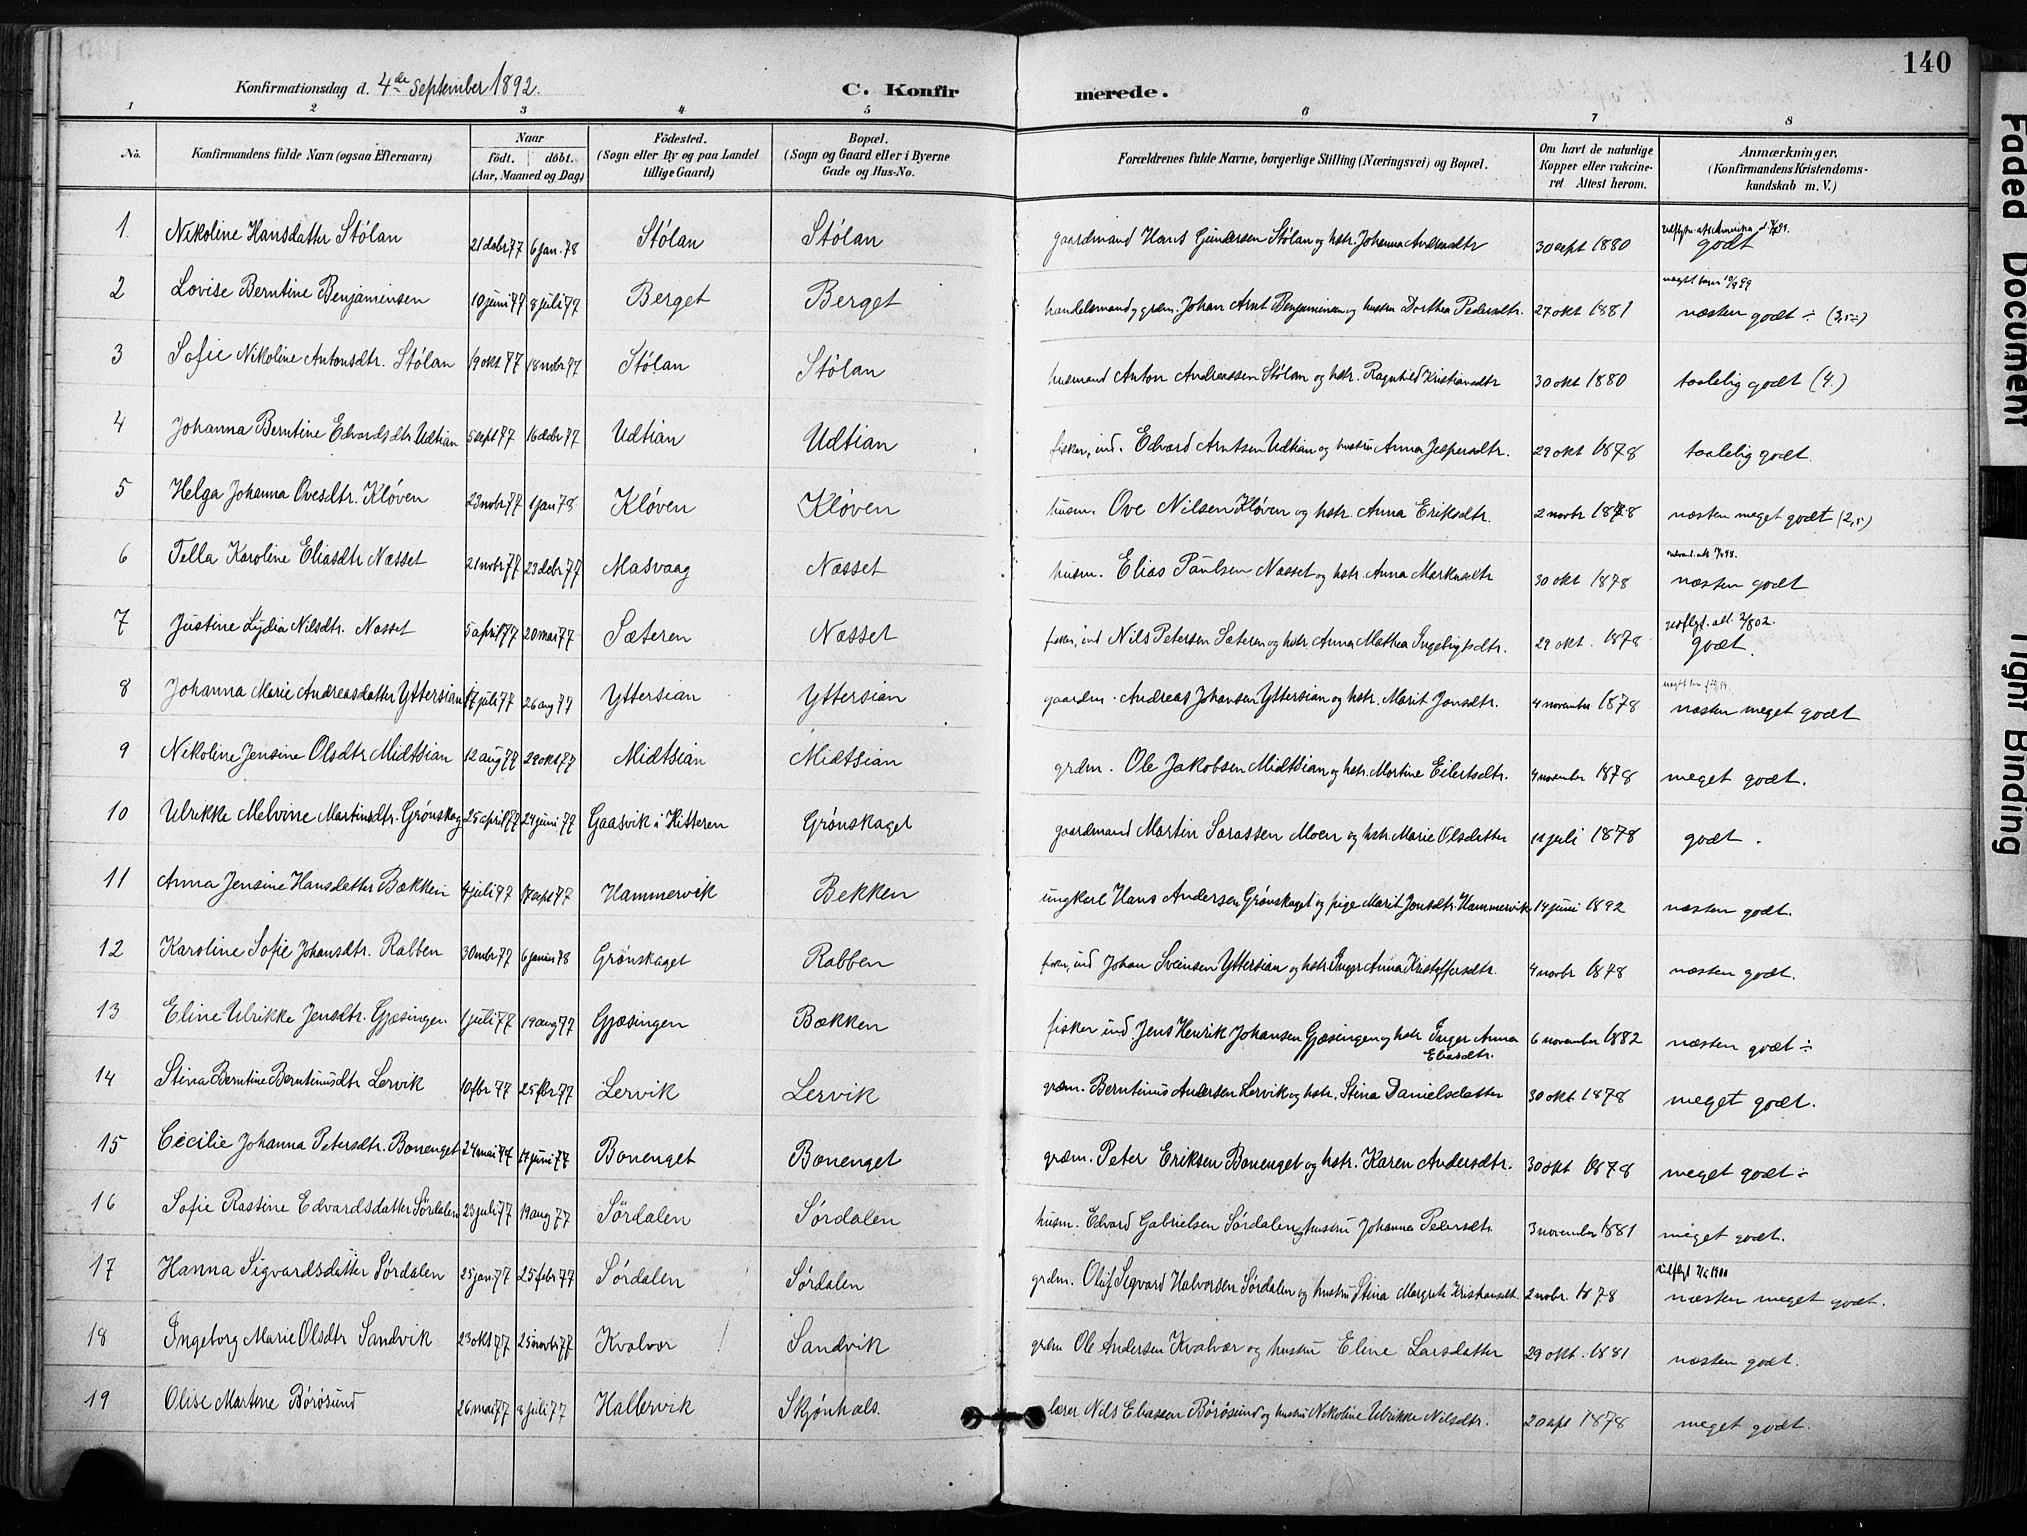 140
Konfirmationsdag d. 4de september 1892.
C. Konfir merede.
1 2 3 4 5 6 7 8
No.
Konfirmandens fulde Navn (ogsaa Efternavn)
Naar
födt. döbt.
(Aar, Maaned og Dag)
Födested.
(Sogn eller By og paa Landet
tillige Gaard)
Bopæl.
(Sogn og Gaard eller i Byerne
Gade og Hus-No.
Forældrenes fulde Navne, borgerlige Stilling (Næringsvei) og Bopæl.
Om havt de naturlige
Kopper eller vakcine-
ret Attest herom.
Anmærkninger,
(Konfirmandens Kristendoms-
kundskab m. V.)
1 Nikoline Hansdatter Stólan 21 debr 77 6 jan. 78 Stólan Stólan gaardmand Hans Gundersen Stólan og hstr. Johanna Andreasdtr 30 sept 1880 godt
2 Lovise Berntine Benjaminsen 10 juni 77 8 juli 77 Berget Berget handelsmand og grdm. Johan Arnt Benjaminsen og hustru Dorthea Pedersdtr. 27 okt 1881 næsten godt ÷ (3,5)
3 Sofie Nikoline Antonsdtr. Stólan 19 okt 77 18 nvbr 77 Stólan Stólan husmand Anton Andreassen Stólan og hstr. Ragnhild Kristiansdtr 30 okt 1880 taalelig godt (4.)
4 Johanna Berntine Edvardsdtr Udtian 5 sept 77 16 debr 77 Udtian Udtian fisker, ind. Edvard Arntsen Udtian og hustru Anna Jespersdtr. 29 okt 1878 taalelig godt.
5 Helga Johanna Ovesdtr. Kløven 23 novbr 77 1 jan 78 Kløven Kløven husm. Ove Nilsen Kløven og hstr. Anna Eriksdtr. 2 novbr 1878 næsten meget godt (2,5)
6 Tella Karoline Eliasdtr Næsset 21 novbr 77 23 debr 77 Masvaag Næsset husm. Elias Paulsen Næsset og hstr. Anna Markusdtr 30 okt 1878 næsten godt
7 Justine Lydia Nilsdtr. Næsset 5 april 77 20 mai 77 Sæteren Næsset fisker, ind Nils Petersen Sæteren og hstr Anna Mathea Ingebrigtsdtr. 29 okt. 1878 godt.
8 Johanna Marie Andreasdatter Yttersian 17 juli 77 26 aug 77 Yttersian Yttersian gaardm. Andreas Johansen Yttersian og hstr. Marit Jonsdtr. 4 november 1878 næsten meget godt
9 Nikoline Jensine Olsdtr Midtsian 12 aug 77 28 okt 77 Midtsian Midtsian grdm. Ole Jakobsen Midtsian og hstr. Martine Eilertsdtr. 4 november 1878 meget godt.
10 Ulrikke Melvine Martinsdtr. Grónskag 25 april 77 24 juni 77 Gaasvik i Hitteren Grónskaget gaardmand Martin Larassen Moen og hstr. Marie Olsdatter 11 juli 1878 godt.
11 Anna Jensine Hansdatter Bækken 4 juli 77 17 sept 77 Hammervik Bekken ungkarl Hans Andersen Grónskaget og pige Marit Jonsdtr. Hammervik 14 juni 1892 næsten godt.
12 Karoline Sofie Johansdtr. Rabben 30 nvbr 77 6 januar 78 Grónskaget Rabben fisker, ind Johan Sveinsen Yttersian og hstr Inger Anna Kristoffersdtr. 4 novbr 1878 næsten godt.
13 Eline Ulrikke Jensdtr. Gjæsingen 1 juli 77 19 aug 77 Gjæsingen Bækken fisker ind. Jens Henrik Johansen Gjæsingen og hstr Inger Anna
Eliasdtr. 6 november 1882 næsten godt ÷
14 Stina Berntine Berntinusdtr Lervik 10 fbr 77 25 fbr 77 Lervik Lervik grdm. Berntinus Andersen Lervik og hstr. Stina Danielsdatter 30 okt. 1878 meget godt.
15 Cecilie Johanna Petersdtr. Bonenget 24 mai 77 17 juni 77 Bonenget Bonenget grdm. Peter Eriksen Bonenget og hstr. Karen Andersdtr. 30 okt 1878 meget godt ÷
16 Sofie Rastine Edvardsdatter Sórdalen 23 juli 77 19 aug 77 Sórdalen Sórdalen husm. Edvard Gabrielsen Sórdalen og hustru Johanna Pedersdtr. 3 november 1881 meget godt.
17 Hanna Sigvardsdatter Sórdalen 25 jan. 77 25 febr 77 Sórdalen Sórdalen grdm. Oluf Sigvard Halvorsen Sórdalen og hustru Stina Margrete Kristiansdt. 2 nobr. 1878 næsten meget godt.
18 Ingeborg Marie Olsdtr Sandvik 23 okt 77 25 novbr 77 Kvalvær Sandvik grdm Ole Andersen Kvalvær og hustru Eline Larsdatter 29 okt. 1881 næsten godt.
19 Olise Martine Bórósund 26 mai 77 8 juli 77 Hallervik Skjónhals. lærer Nils Eliassen Bórósund og hustru Nikoline Ulrikke Nilsdtr. 20 spt 1878 meget godt.
Faded Document
Tight Binding